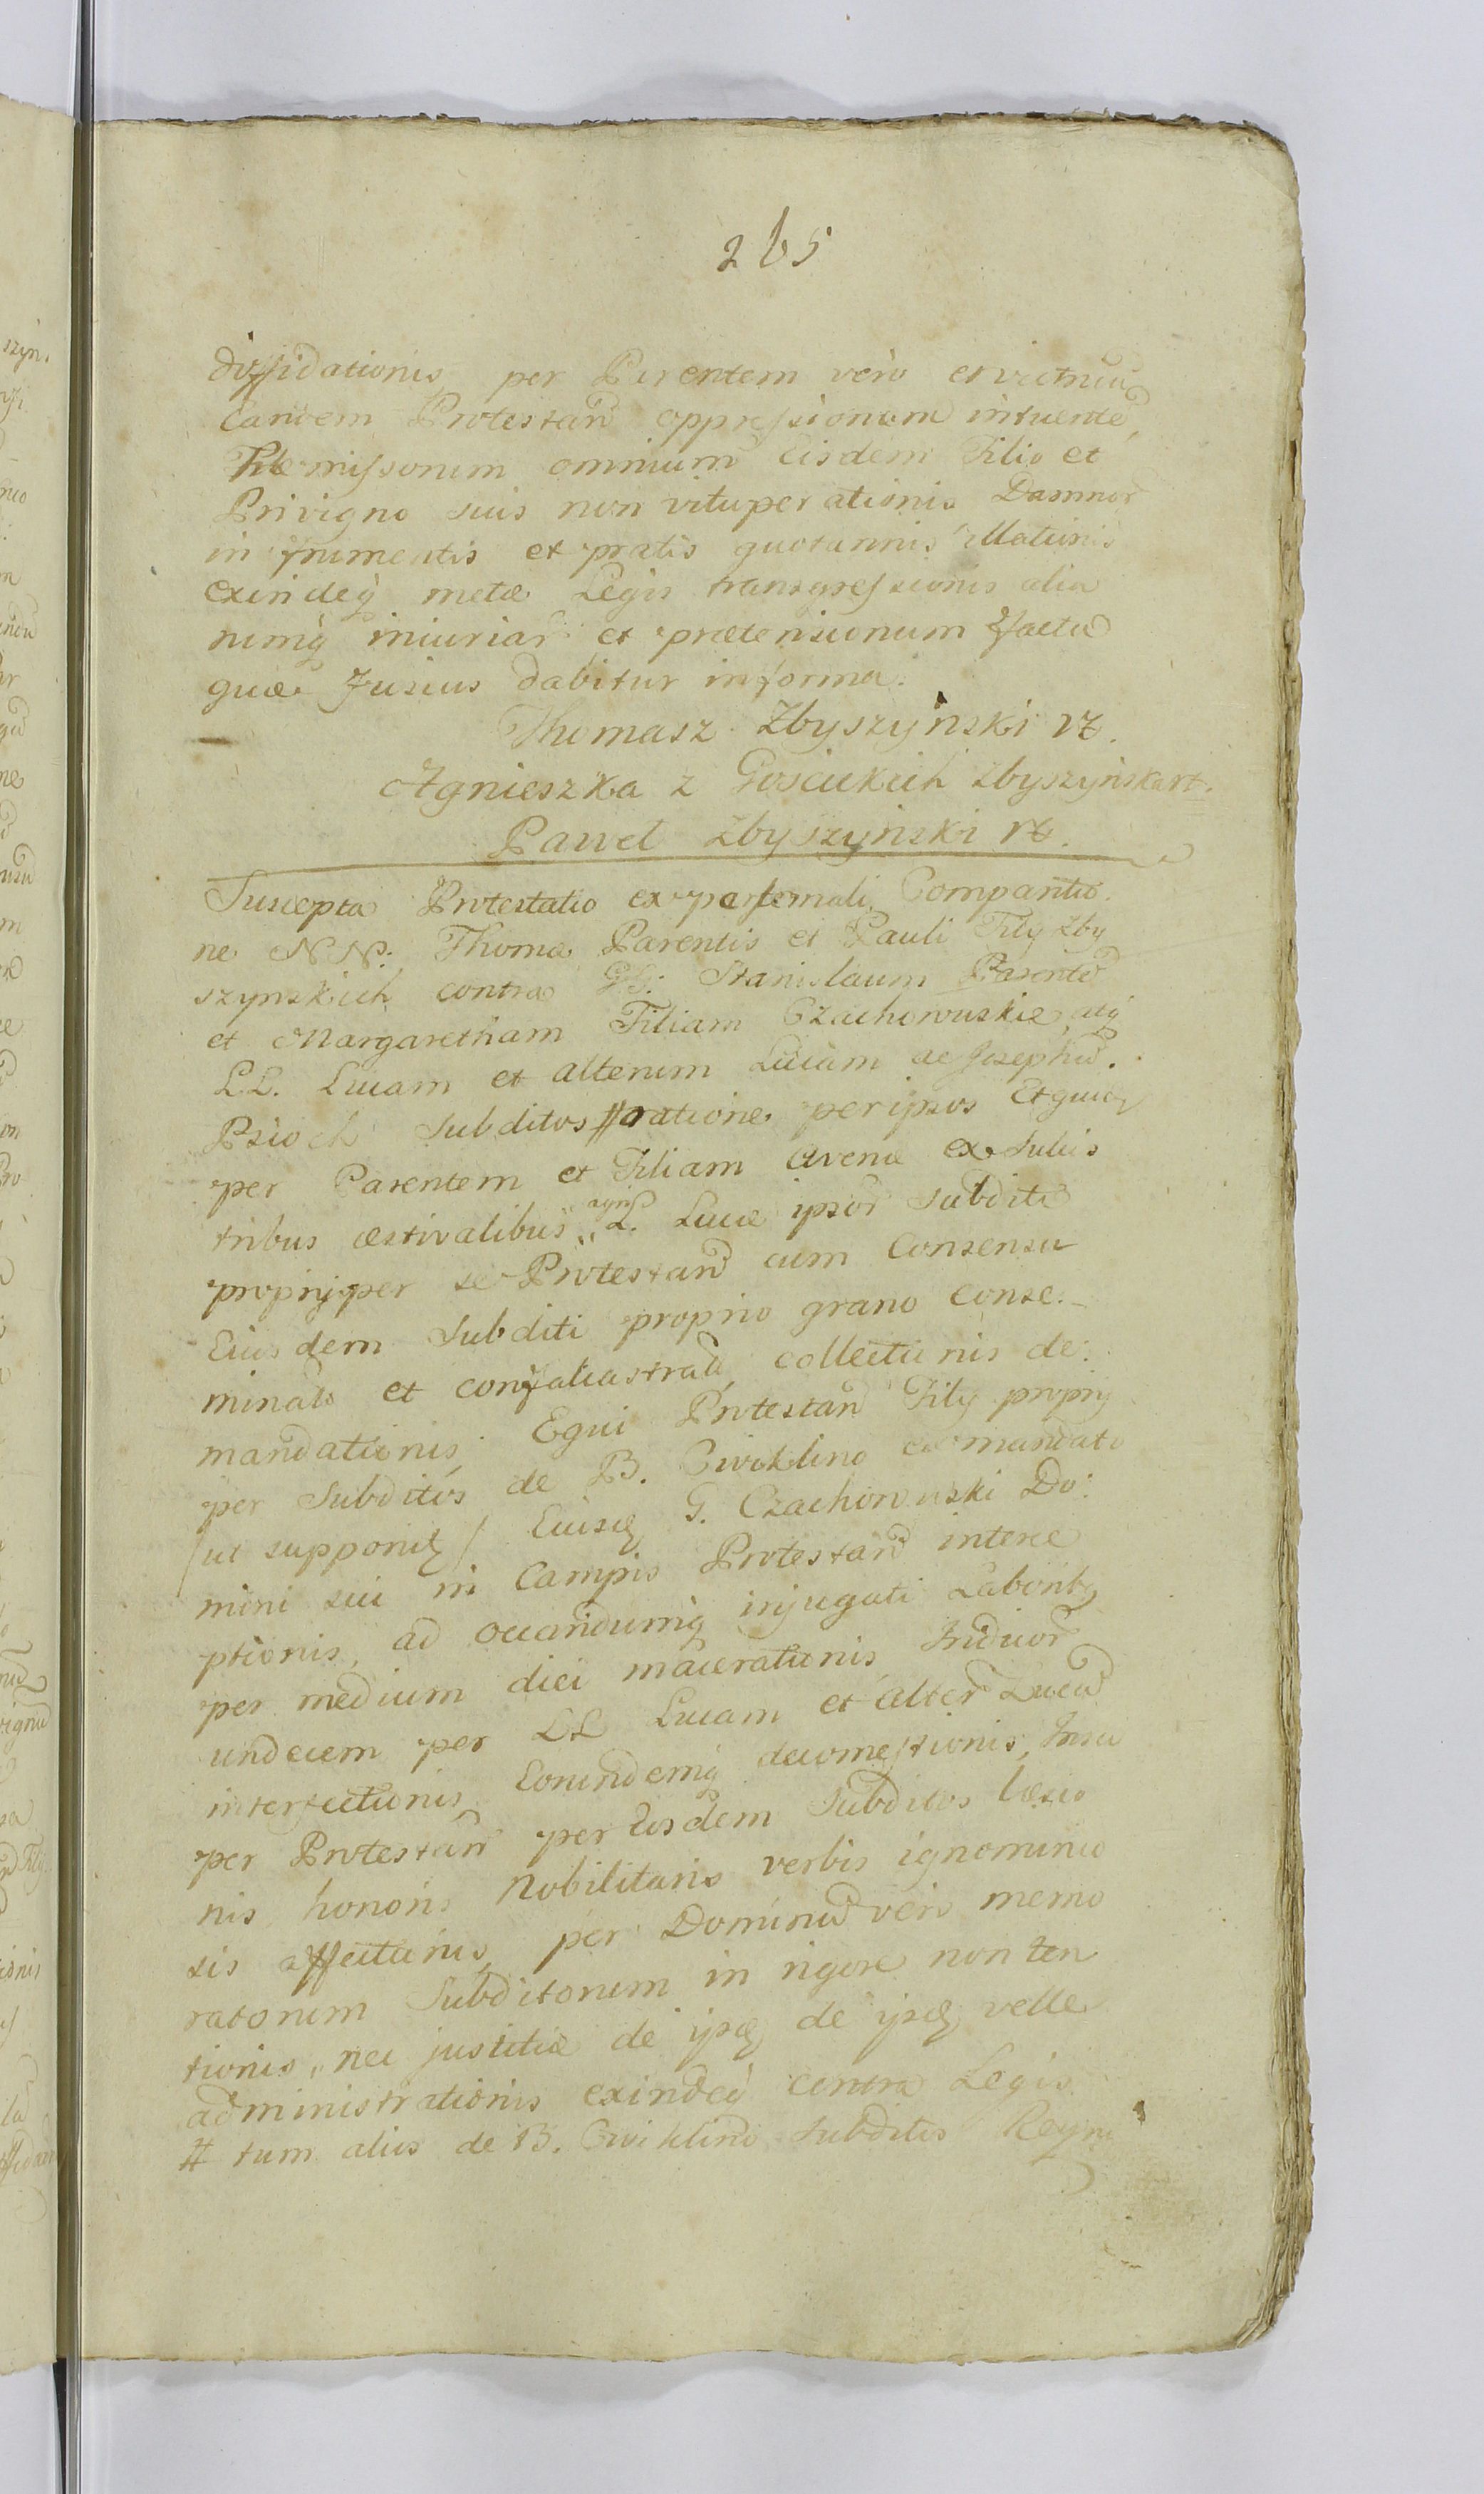 265
diffidationis per Parentem vero et vitricũ
eandem Protestañ oppressionem intuentẽ,
Præmissorum omnium eisdem Filio et
Privigno suis non vituperationis Damnor̃
in frumentis et pratis quotannis illationis
exindeq̃ metæ Legis transgressionis alia
rumq̃ iniuriar̃ et prætensionum facta
quæ fusius dabitur in forma.
Thomasz Zbyszyński rz.
Agnieszka z Goscickich Zbyszyńska rz.
Paweł Zbyszyński rz.
Suscepta Protestatio ex personali Comparitio
ne NN: Thomæ Parentis et Pauli Filij Zby
szynskich contra GG: Stanislaum Parentẽ
et Margaretham Filiam Czachorowskie atq̃
LL. Lucam et alterum Lucam ac Josephũ.
Psioch Subditos # ratione per ipsos Et quidẽ
per Parentem et Filiam avenæ ex Sulcis
tribus æstivalibus agris L. Lucæ ipsor̃ Subditi
proprij per se Protestañ cum Consensu
Eiusdem Subditi proprio grano conse.
minatis et confalcastratæ, collectionis de:
mandationis, Equi Protestañ Filij proprij
per Subditos de B. Cwiklino de mandato
/ut supponit̃/ Eiusd̃ G. Czachorowski Do:
mini sui in Campis Protestañ interce
ptionis, ad occandumq̃ injugati Laborib9
per medium diei macerationis, Anduor̃
undecem per LL Lucam et alter̃ Lucã
interfectionis Eorundemq̃ decomestionis, Insu
per Protestañ per Eosdem Subditos læsio
nis honoris Nobilitaris verbis ignominio
sis affectionis, per Dominũ vero memo
ratorum Subditorum in rigore non ten
tionis, nec justitiæ de ipsis de ipsis velle
administrationis exindeq̃ contra Legis
# tum alios de B. Cwiklino Subditos Regni